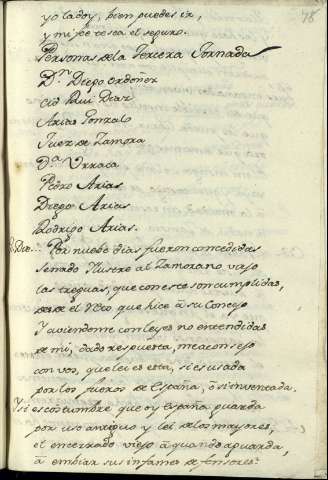 78
yo la doy, bien puedes ir,
y mi fee te sea el seguro.
Personas de la Tercera Jornada
Dn Diego Ordoñez
Cid Rui Diaz
Arias Gonzalo
Juez de Zamora
Da Urraca
Pedro Arias
Diego Arias
Rodrigo Arias.
Por nuebe dias fueron concedidas
Senado Ilustre al Zamorano viejo
las treguas, que con este son cumplidas,
el Reto que hice a su Concejo
Y aviendome con leyes no entendidas
de mi, dado respuesta, me aconsejo
con vos, que lei es esta, si es usada
por los fueros de España, o si inventada.
Y si es costumbre que oy España guarda
por uso antiguo y lei de los mayores,
el encerrado viejo a quando aguarda,
a embiar sus infames defensores?